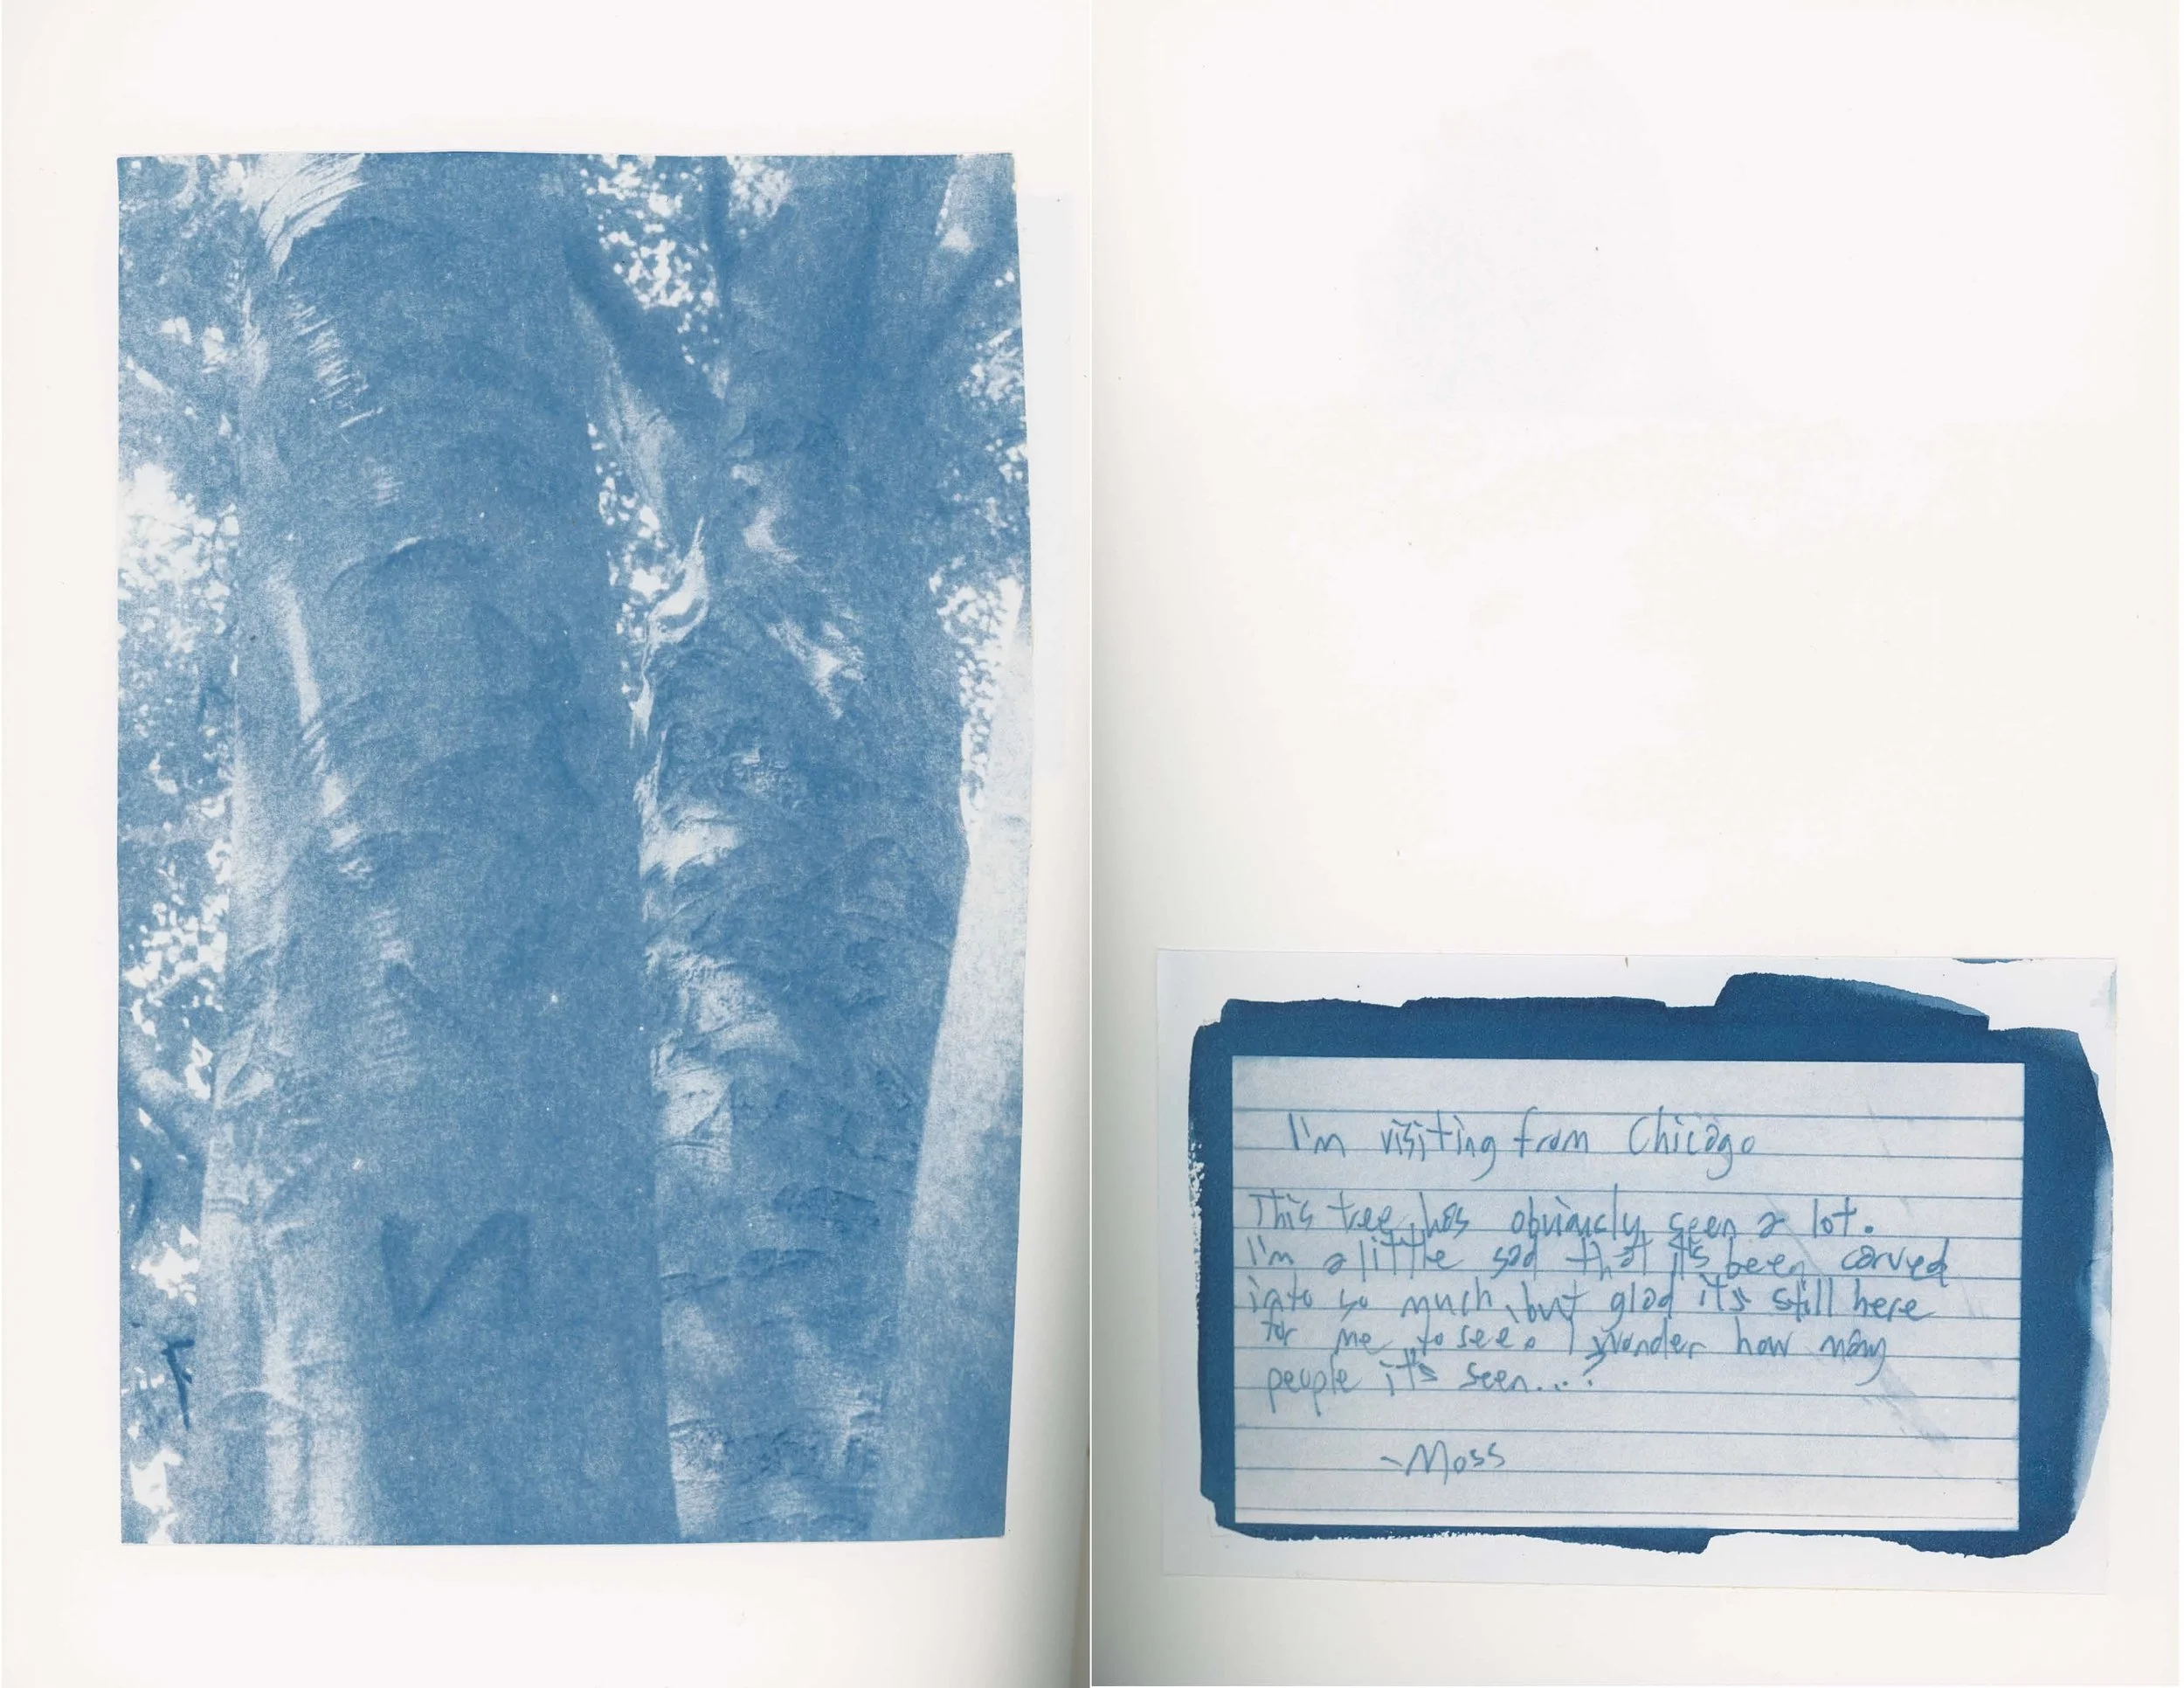 N
I'm visiting from Chicago
This tree has obviously seen a lot.
I'm a little sad that it's been carved
into so much, but glad it's still here
for me to see. I wonder how many
people it's seen...?
-Moss